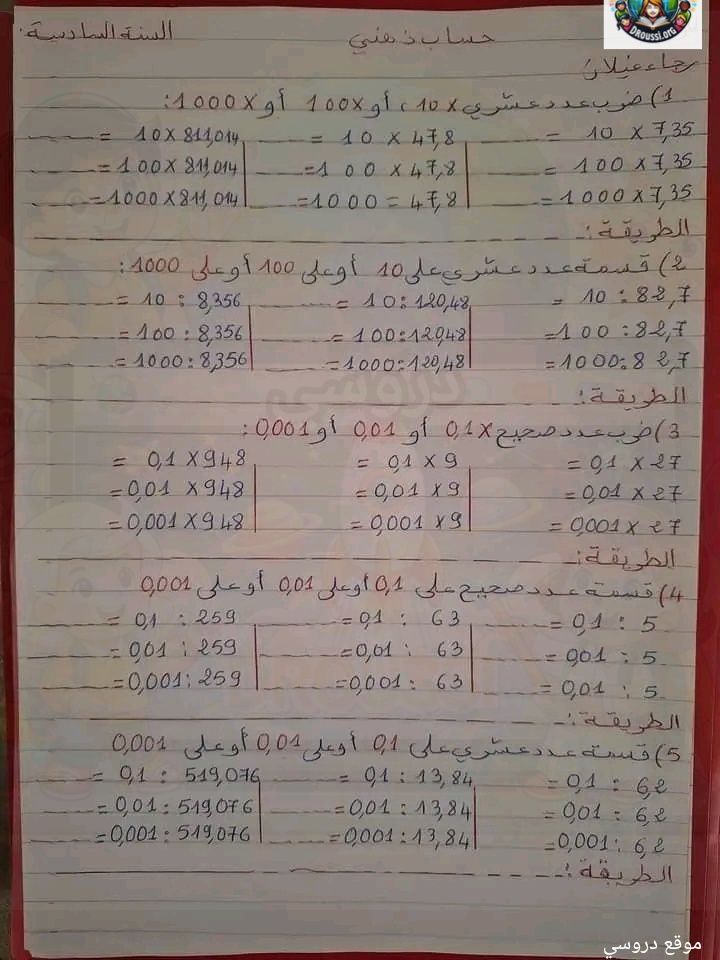 DRoussi.org
السنة السادسة. حساب ذهني
رجاء عيلان
1) ضرب عدد عشري × 10، أو × 100 أو × 1000:
7,35 × 10 = 47,8 × 10 = 811,014 × 10 =
7,35 × 100 = 47,8 × 100 = 811,014 × 100 =
7,35 × 1000 = 47,8 = 1000 = 811,014 × 1000 =
الطريقة:
2) قسمة عدد عشري على 10 أو على 100 أو على 1000:
82,7 : 10 = 120,48 : 10 = 8,356 : 10 =
82,7 : 100 = 120,48 : 100 = 8,356 : 100 =
82,7 : 1000 = 120,48 : 1000 = 8,356 : 1000 =
الطريقة:
3) ضرب عدد صحيح × 0,1 أو 0,01 أو 0,001:
27 × 0,1 = 9 × 0,1 = 948 × 0,1 =
27 × 0,01 = 9 × 0,01 = 948 × 0,01 =
27 × 0,001 = 9 × 0,001 = 948 × 0,001 =
الطريقة:
4) قسمة عدد صحيح على 0,1 أو على 0,01 أو على 0,001
5 : 0,1 = 63 : 0,1 = 259 : 0,1 =
5 : 0,01 = 63 : 0,01 = 259 : 0,01 =
5 : 0,01 = 63 : 0,001 = 259 : 0,001 =
الطريقة:
5) قسمة عدد عشري على 0,1 أو على 0,01 أو على 0,001
6,2 : 0,1 = 13,84 : 0,1 = 519,076 : 0,1 =
6,2 : 0,01 = 13,84 : 0,01 = 519,076 : 0,01 =
6,2 : 0,001 = 13,84 : 0,001 = 519,076 : 0,001 =
الطريقة:
دروسي
موقع دروسي